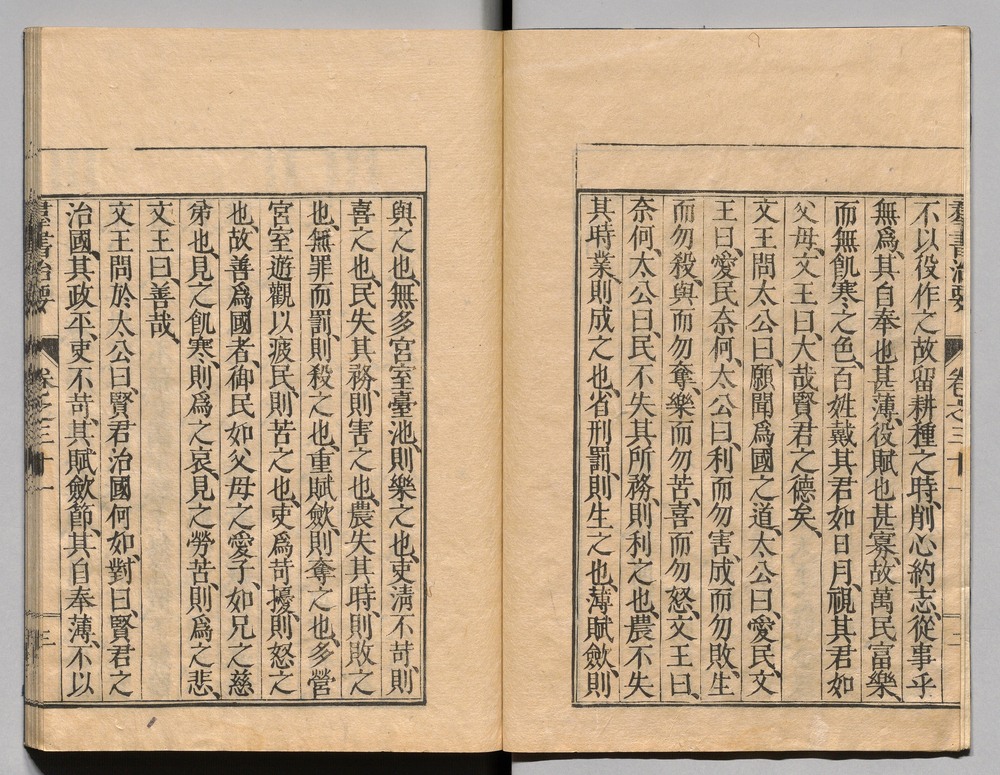 羣書治要 卷之三十一 二
不以役作之故留耕種之時、削心約志、從事乎
無爲、其自奉也甚薄、役賦也甚寡、故萬民富樂、
而無飢寒之色、百姓戴其君如日月、視其君如
父母、文王曰、大哉賢君之德矣、
文王問太公曰、願聞爲國之道、太公曰、愛民、文
王曰、愛民奈何、太公曰、利而勿害、成而勿敗、生
而勿殺、與而勿奪、樂而勿苦、喜而勿怒、文王曰、
奈何、太公曰、民不失其所務、則利之也、農不失
其時業、則成之也、省刑罰、則生之也、薄賦斂、則
與之也、無多宮室臺池、則樂之也、吏淸不苛、則
喜之也、民失其務、則害之也、農失其時、則敗之
也、無罪而罰、則殺之也、重賦斂、則奪之也、多營
宮室遊觀以疲民、則苦之也、吏爲苛擾、則怒之
也、故善爲國者、御民如父母之愛子、如兄之慈
弟也、見之飢寒、則爲之哀、見之勞苦、則爲之悲、
文王曰、善哉、
文王問於太公曰、賢君治國何如、對曰、賢君之
治國、其政平、吏不苛、其賦斂節、其自奉薄、不以
羣書治要 卷之三十一 三